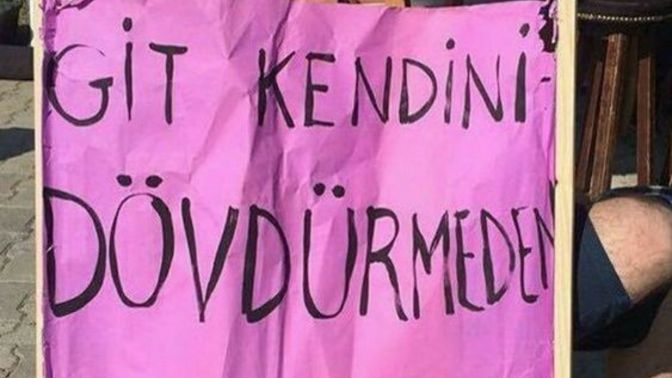 GİT KENDİNİ
DÖVDÜRMEDEN